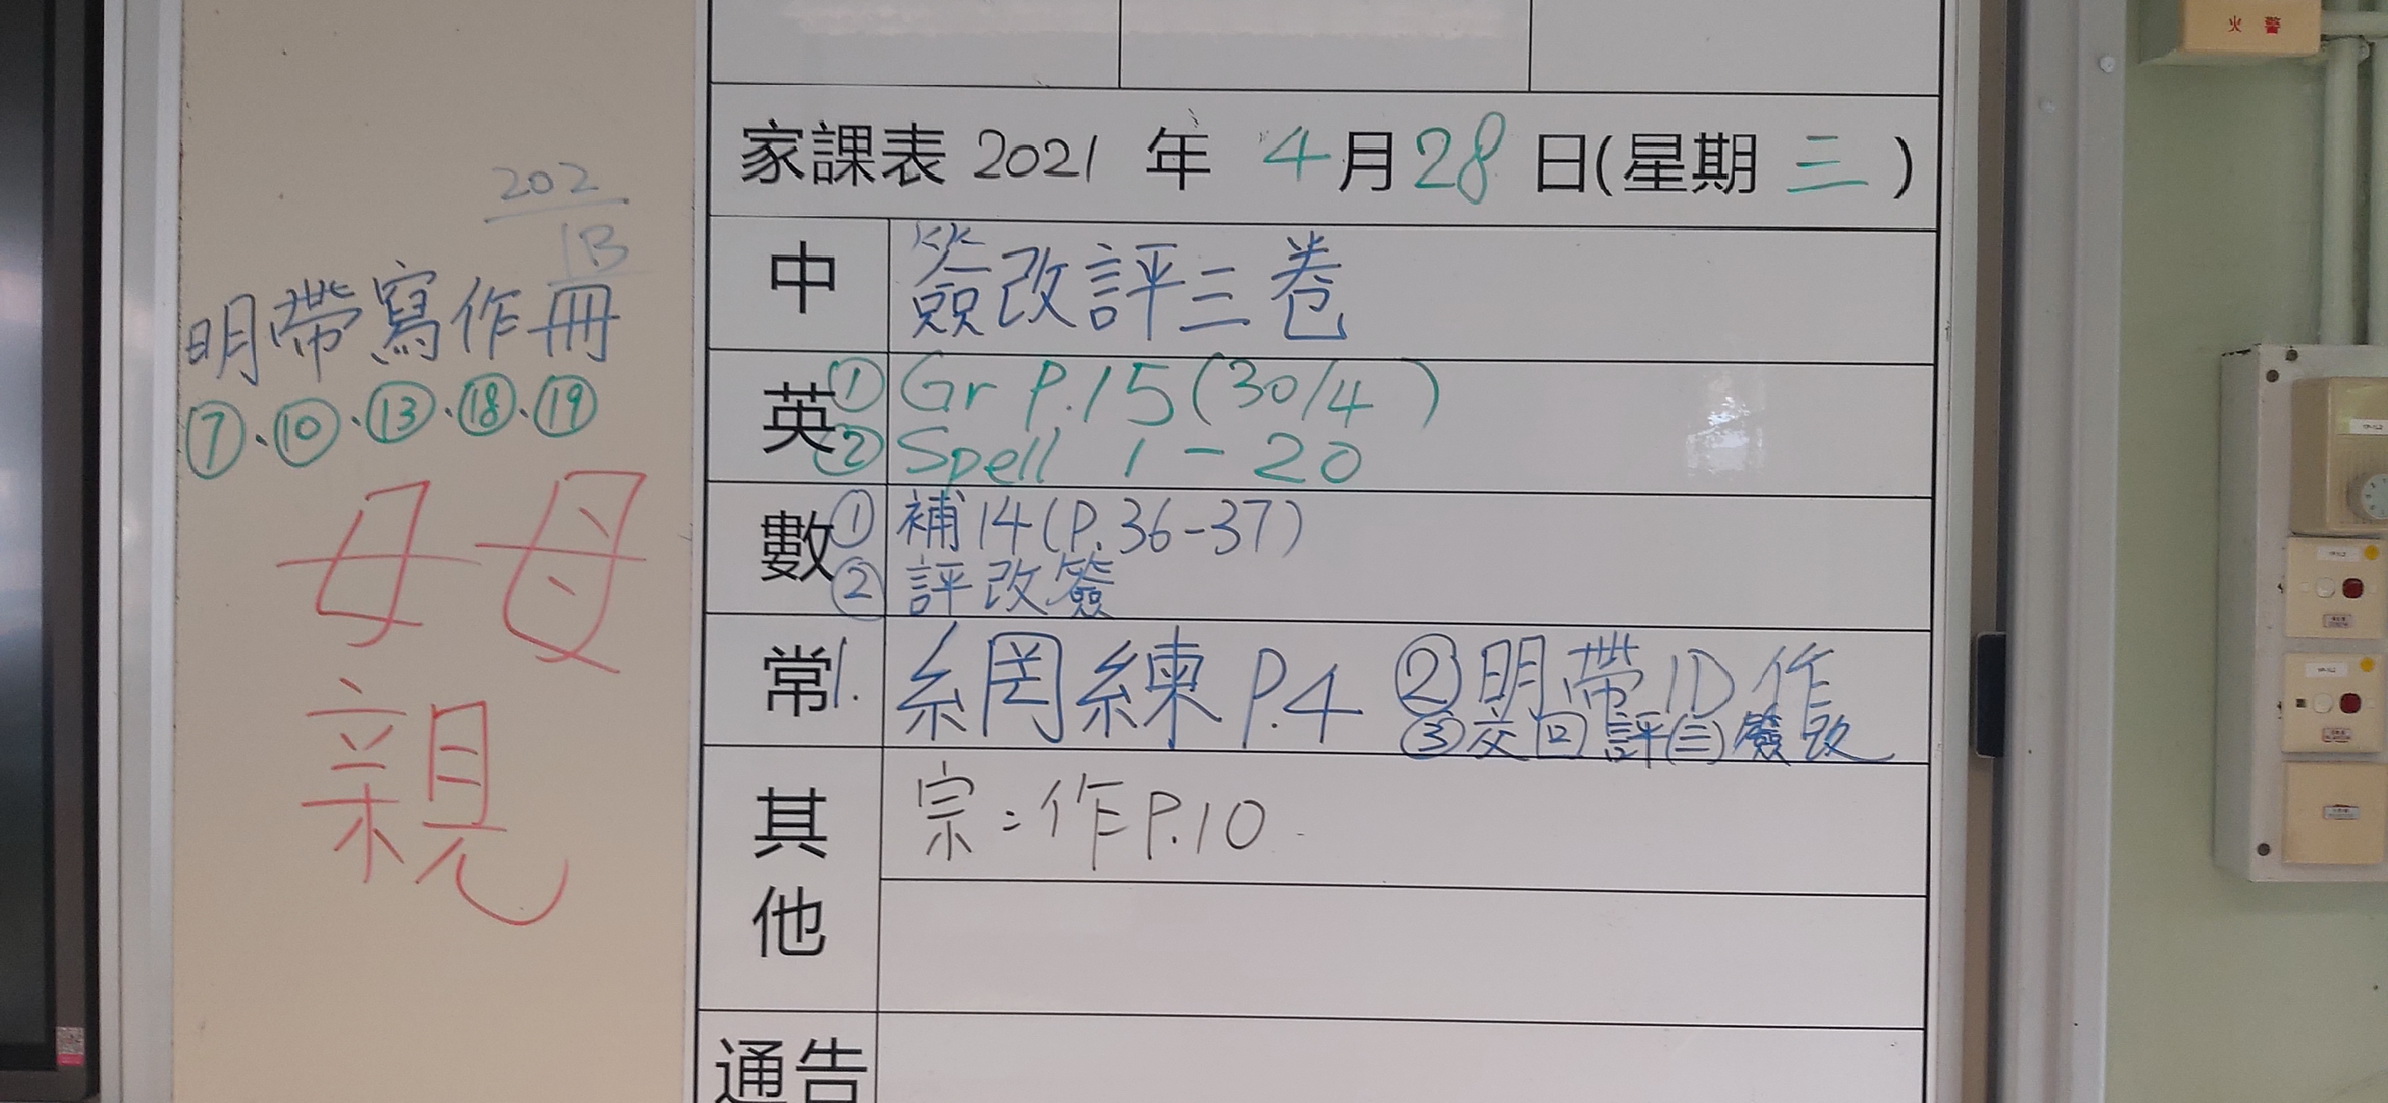 202
1B
明帶寫作冊
⑦、⑩、⑬、⑱、⑲
母
親
家課表 2021 年 4月28日(星期三)
中 簽改評三卷
英 ① Gr P.15 (30/4)
② Spell 1-20
數 ① 補14(P.36-37)
② 評改簽
常 1. 網練 P.4 ②明帶1D作
③交回評(三)簽改
其他 宗:作P.10
通告
火警